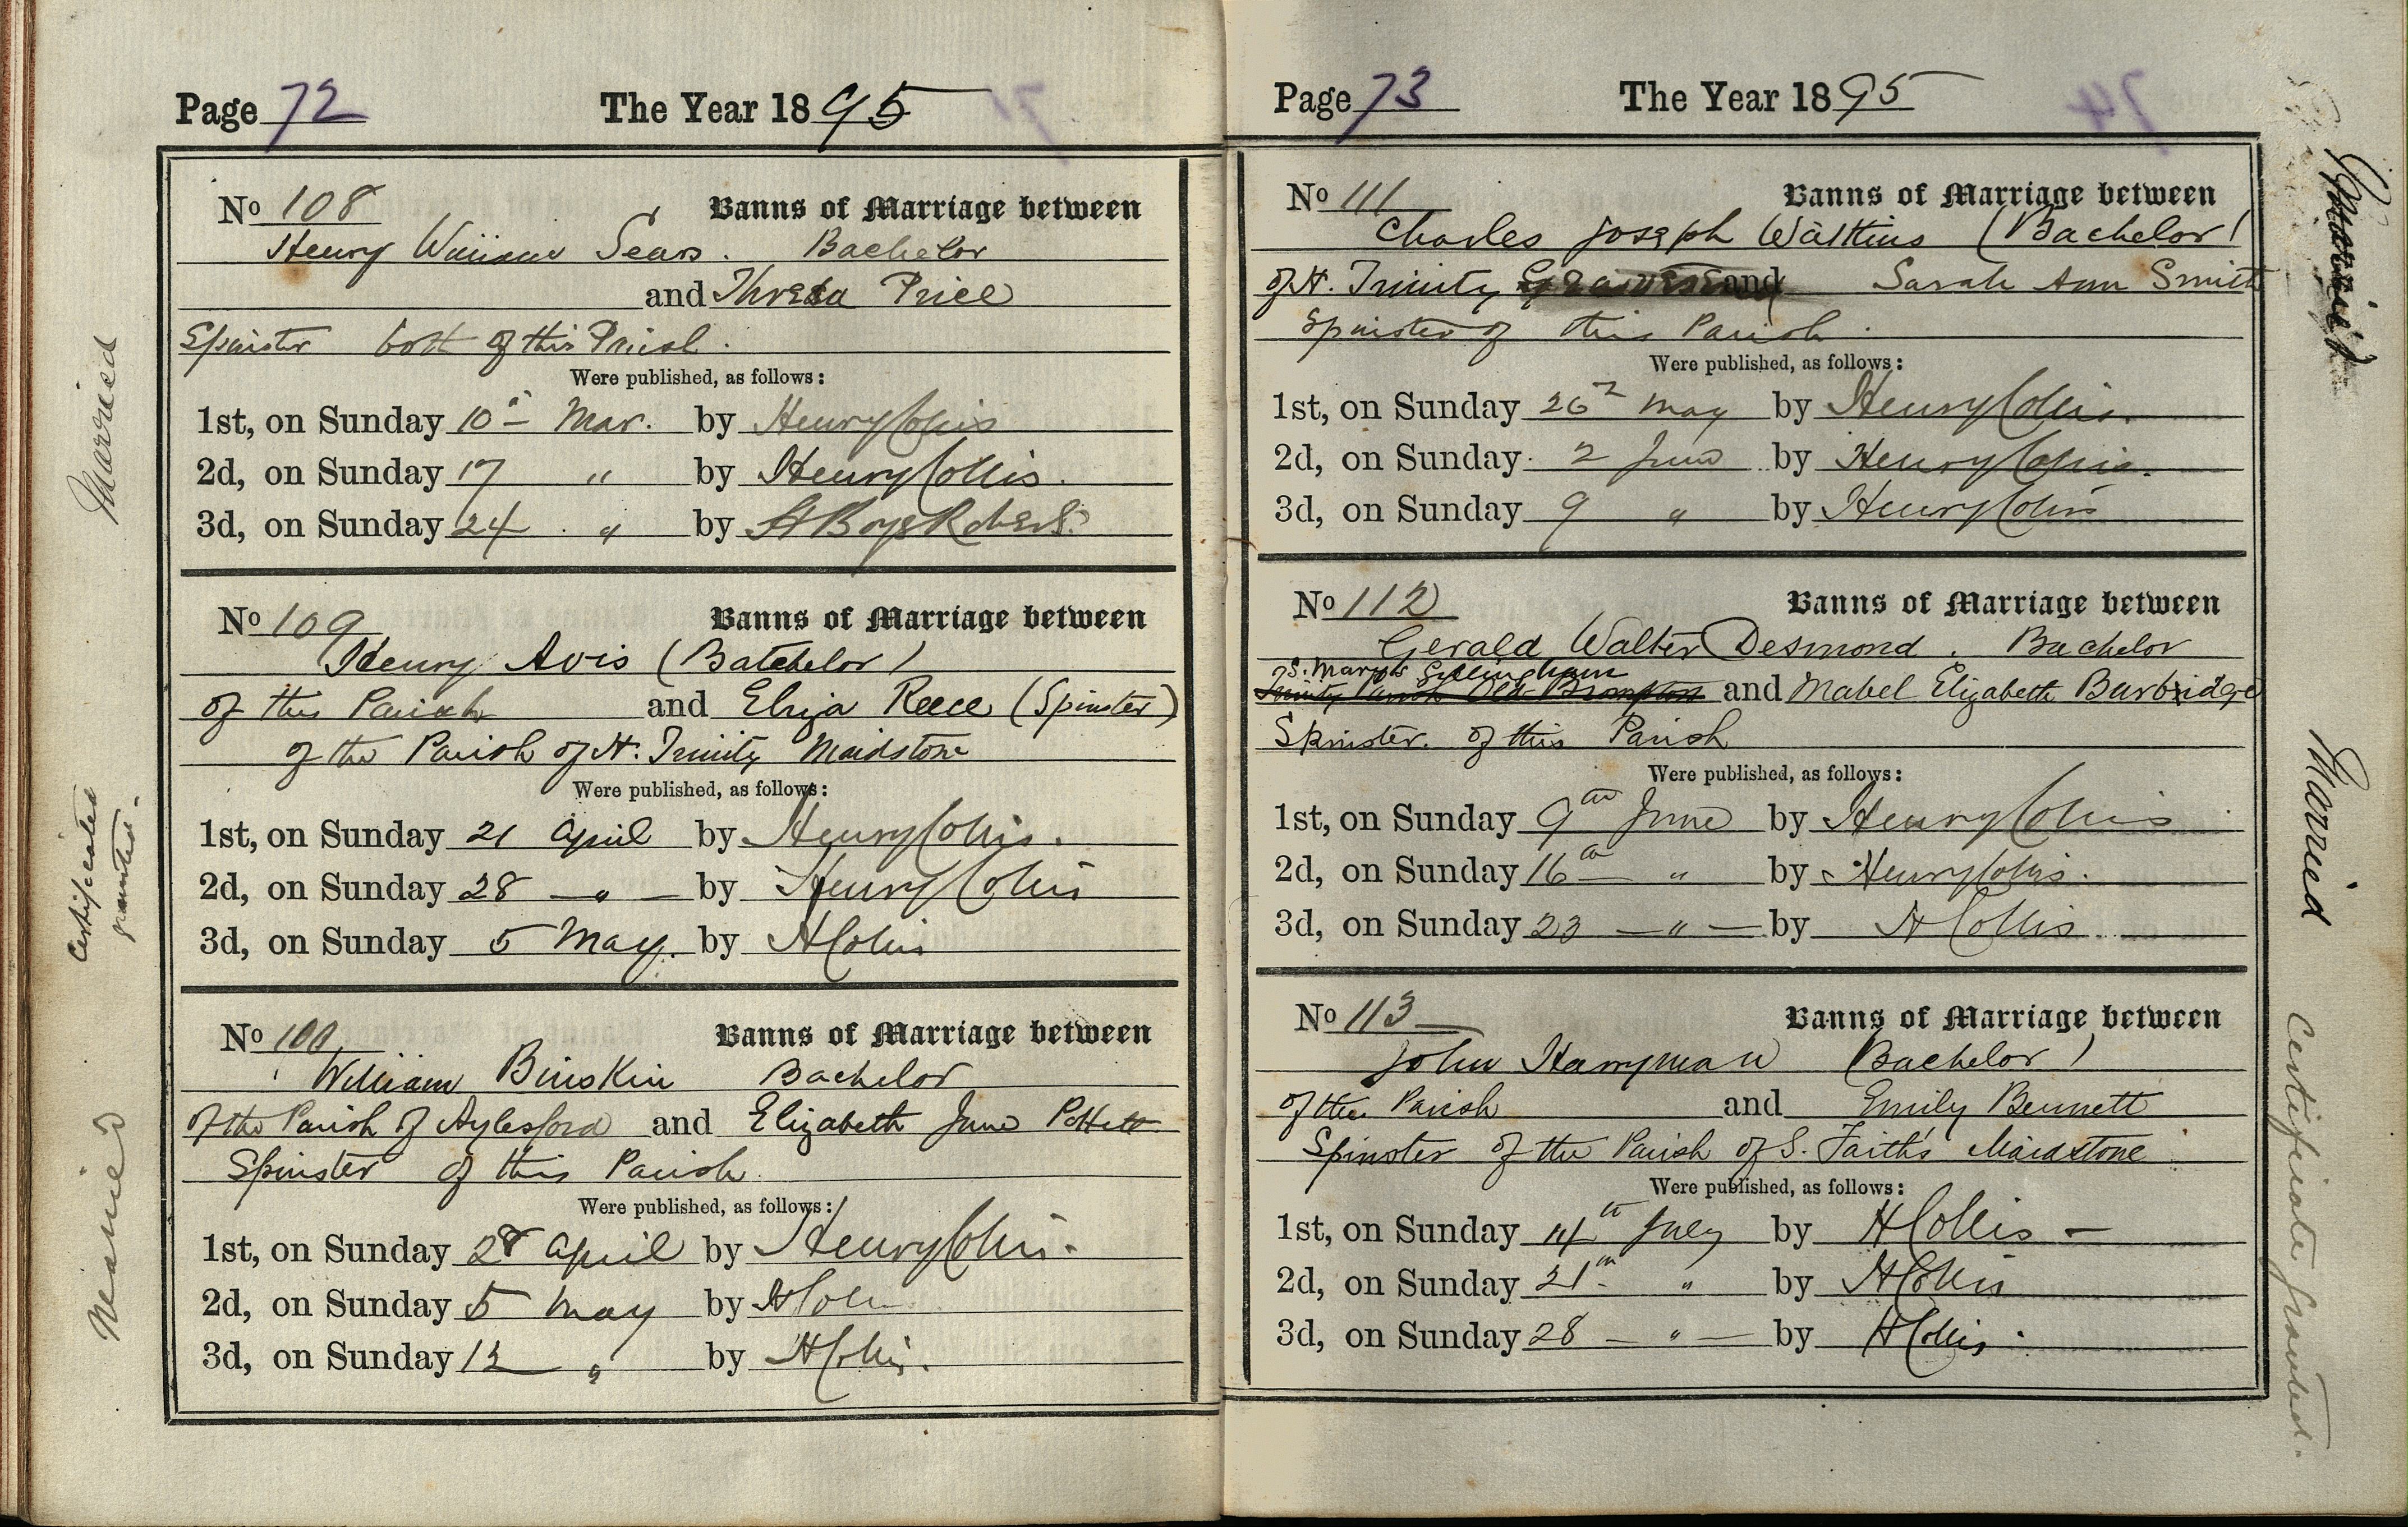 Page 72 The Year 1895
No 108 Banns of Marriage between
Henry William Sears. Bachelor
and Thresa Price
Spinster both of this Parish.
Were published, as follows:
1st, on Sunday 10th Mar. by Henry Collis
2d, on Sunday 17 " by Henry Collis.
3d, on Sunday 24 " by
Married
No 109 Banns of Marriage between
Henry Avis (Batchelor)
of this Parish and Eliza Reece (Spinster)
of the Parish of H. Trinity Maidstone
Were published, as follows:
1st, on Sunday 21 April by Henry Collis.
2d, on Sunday 28 — " — by Henry Collis
3d, on Sunday 5 May. by H Collis
Certificated
granted.
No 100 Banns of Marriage between
William Binskin Bachelor
of the Parish of Aylesford and Elizabeth Jane Pottett
Spinster of this Parish
Were published, as follows:
1st, on Sunday 28 April by Henry Collis.
2d, on Sunday 5 May by H Collis
3d, on Sunday 12 " by H Collis.
Married
Page 73 The Year 1895
74
No 111 Banns of Marriage between
Charles Joseph Watkins (Bachelor)
of H. Trinity Gravesend and Sarah Ann Smith
Spinster of this Parish.
Were published, as follows:
1st, on Sunday 26th May by Henry Collis.
2d, on Sunday 2 June by Henry Collis.
3d, on Sunday 9 " by Henry Collis
Married
No 112 Banns of Marriage between
Gerald Walter Desmond. Bachelor
of S. Mary's Gillingham
Trinity Parish Old Brompton and Mabel Elizabeth Burbridge
Spinster. of this Parish
Were published, as follows:
1st, on Sunday 9th June by Henry Collis
2d, on Sunday 16th " by Henry Collis.
3d, on Sunday 23 — " — by H Collis
Married
No 113 Banns of Marriage between
John Harryman (Bachelor)
of this Parish and Emily Bennett
Spinster of the Parish of S. Faith's Maidstone
Were published, as follows:
1st, on Sunday 14th July by H Collis —
2d, on Sunday 21st " by H Collis
3d, on Sunday 28 — " — by H Collis.
Certificate granted.